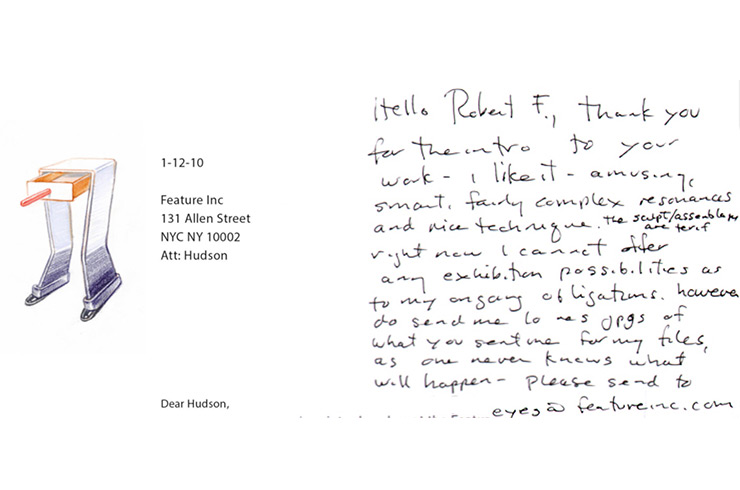 1-12-10
Feature Inc
131 Allen Street
NYC NY 10002
Att: Hudson
Dear Hudson,
Hello Robert F., thank you
for the intro to your
work - i like it - amusing,
smart, fairly complex resonances
and nice technique. the sculpt/assemblages
are terif
right now i cannot offer
any exhibition possibilities as
to my ongoing obligations. however
do send me lo res jpgs of
what you sent me for my files,
as one never knows what
will happen - please send to
eyes@featureinc.com